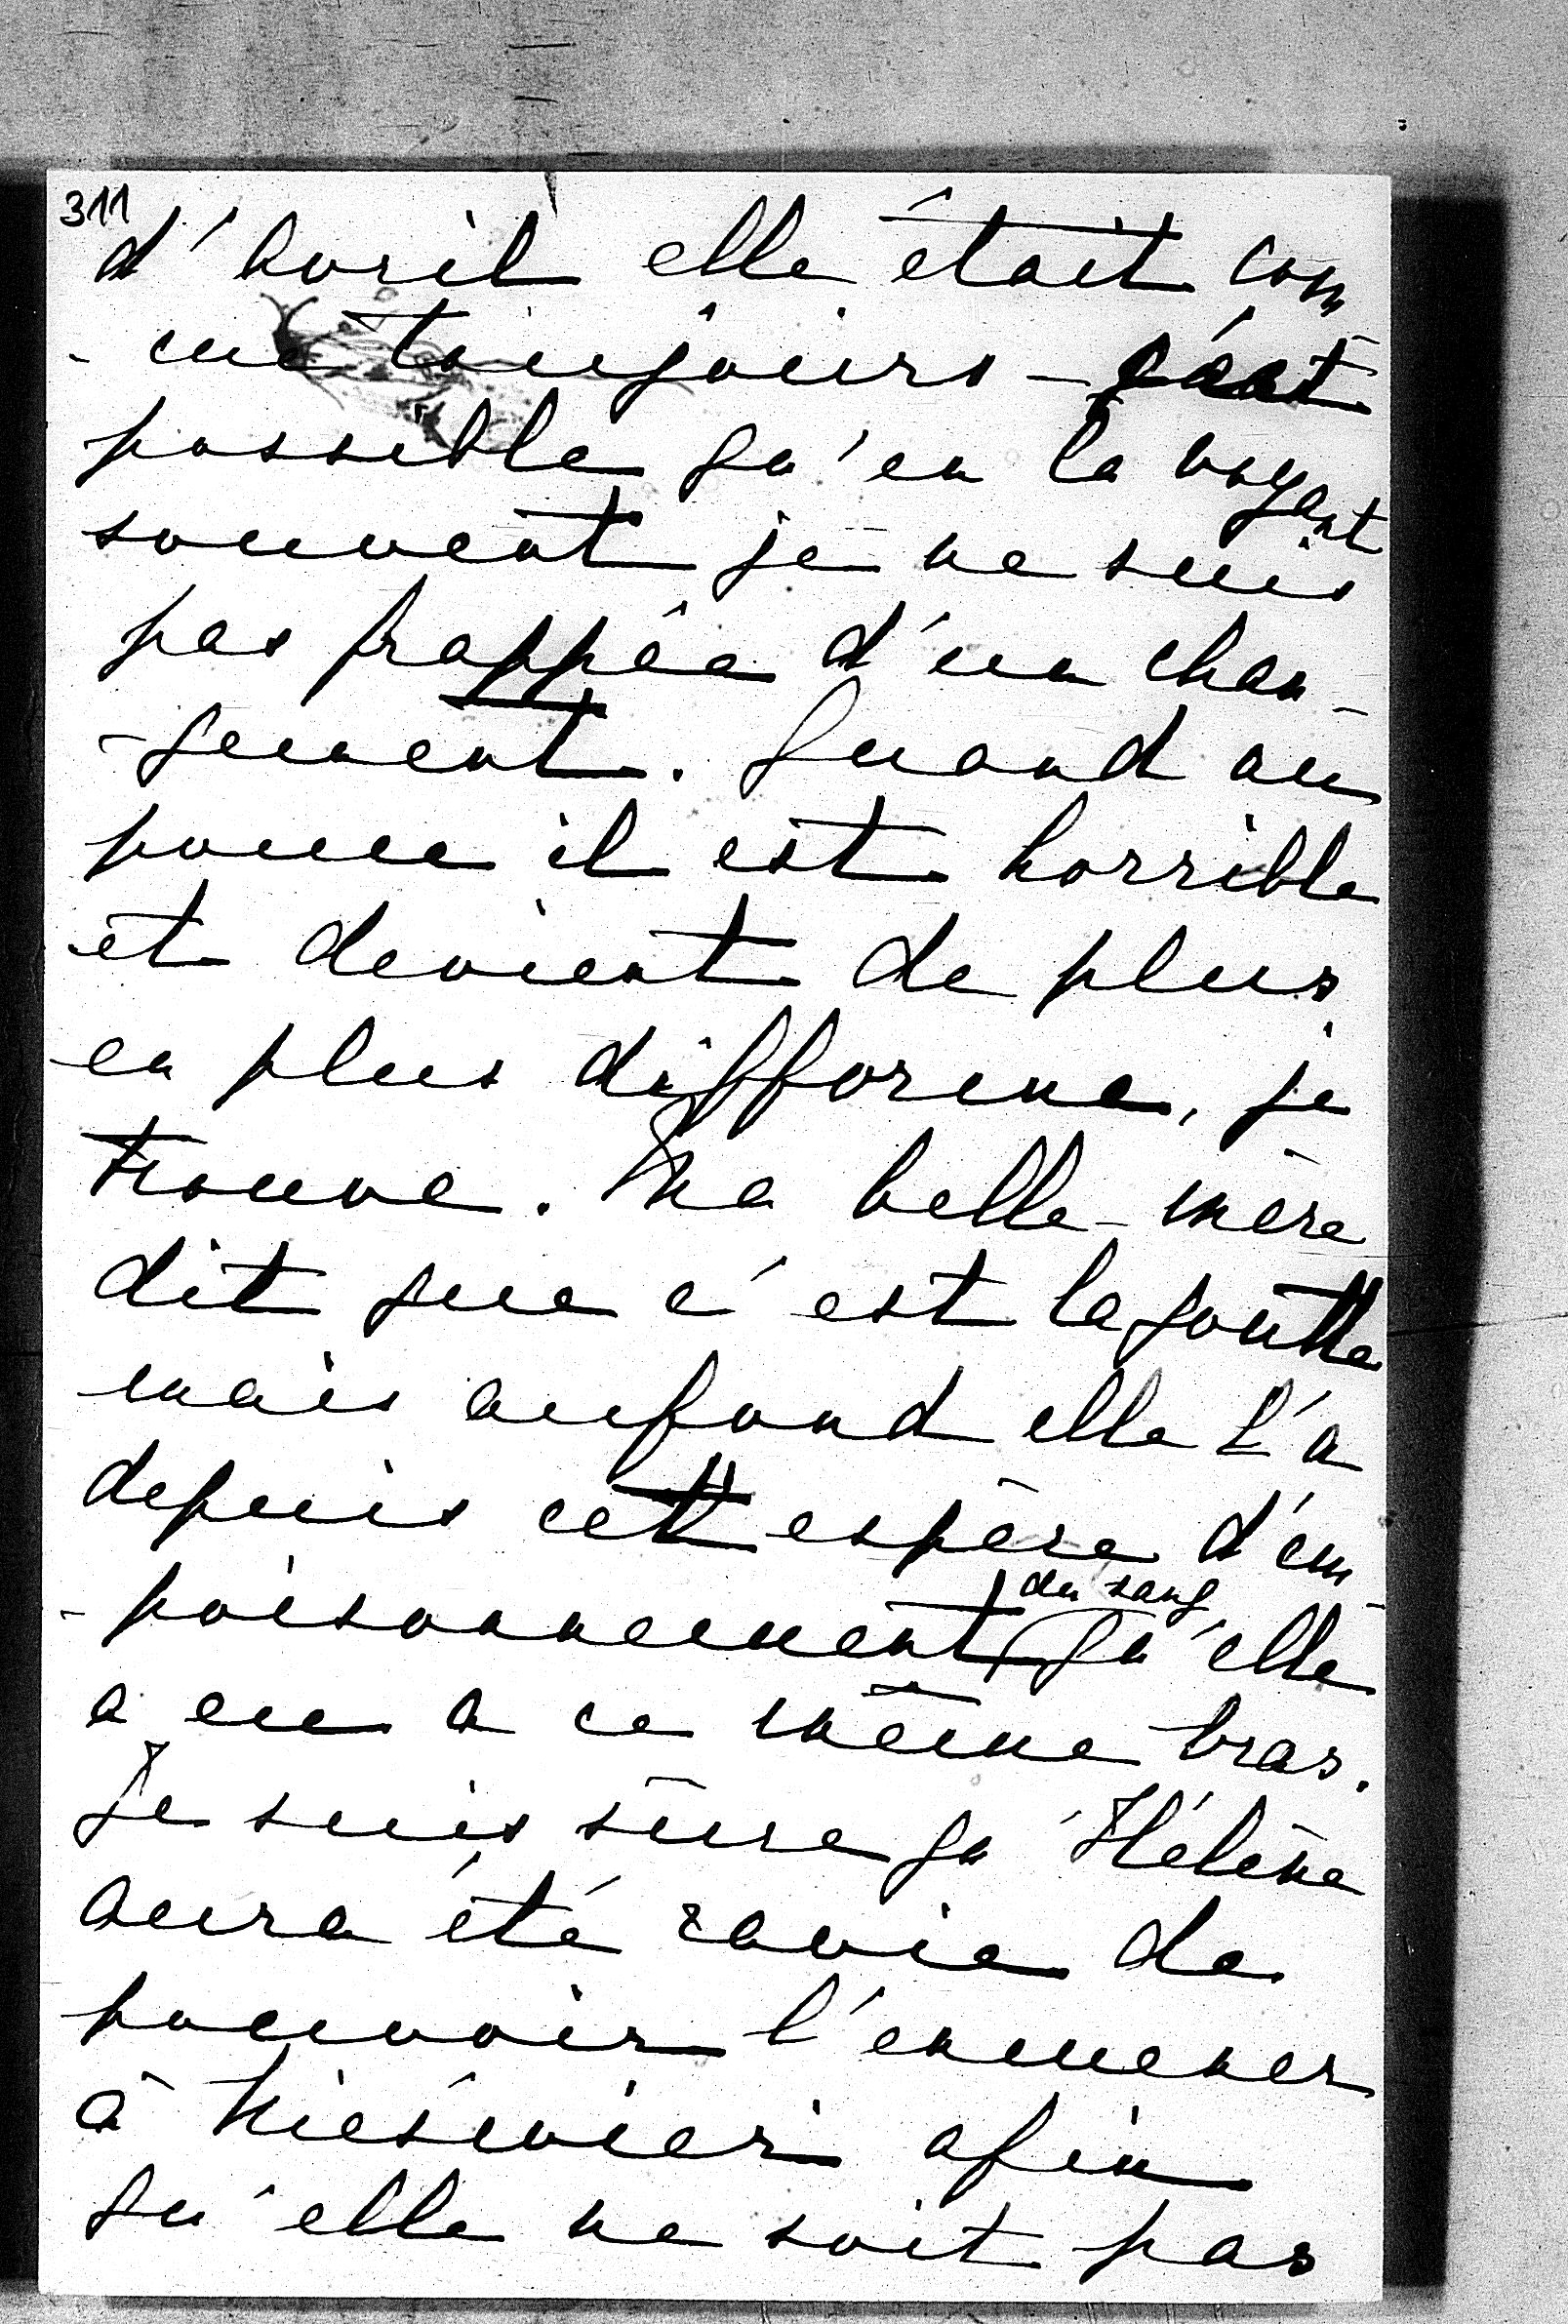 311
d'Avril elle était com
- me toujours - c'est
possible qu'en la voyant
souvent je ne suis
pas frappée d'un chan-
- gement. Quand au
pouce il est horrible
et devient de plus
en plus difforme, je
trouve. Ma belle-mère
dit que c'est la goutte
mais aufond elle l'a
depuis cett espèce d'em-
- poisonnement du sang qu'elle
a eu a ce même bras.
Je suis sûre qu'Hélène
aura été ravie de
pouvoir l'emmener
à Nieswiez afin
qu'elle ne soit pas